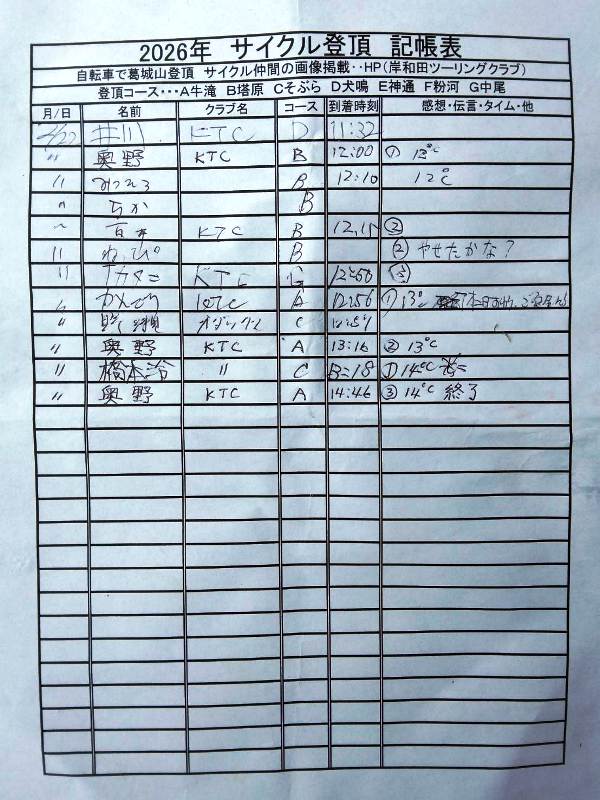 2026年 サイクル登頂 記帳表
自転車で葛城山登頂 サイクル仲間の画像掲載‥HP(岸和田ツーリングクラブ)
登頂コース･･･A牛滝 B塔原 Cそぶら D犬鳴 E神通 F粉河 G中尾
月/日 名前 クラブ名 コース 到着時刻 感想・伝言・タイム・他
2/22 井川 KTC D 11:32
〃 奥野 KTC B 12:00 ① 12℃
〃 みつひろ B 12:10 12℃
〃 ちか B
〃 KTC B 12,15 ②
〃 ねぴ B ② やせたかな?
〃 KTC G 12:50
〃 KTC A 12:56 ① 13℃
〃 C 12:57
〃 奥野 KTC A 13:16 ② 13℃
〃 橋本 〃 C 13:18 ① 14℃
〃 奥野 KTC A 14:46 ③ 14℃ 終了